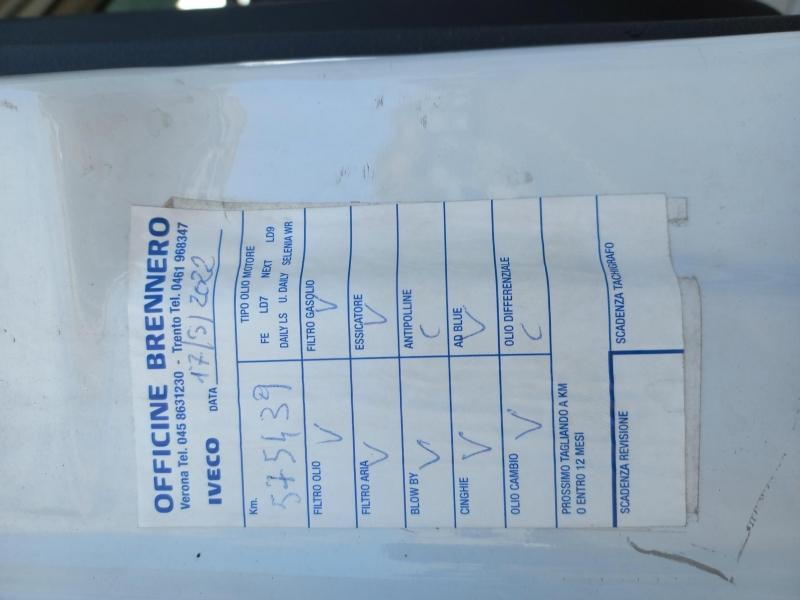 OFFICINE BRENNERO
Verona Tel. 045 8631230 - Trento Tel. 0461 968347
IVECO DATA 17/5/2022
Km. 575439
TIPO OLIO MOTORE
FE LD7 NEXT LD9
DAILY LS U. DAILY SELENIA WR
FILTRO OLIO V FILTRO GASOLIO V
FILTRO ARIA V ESSICATORE V
BLOW BY V ANTIPOLLINE C
CINGHIE V AD BLUE V
OLIO CAMBIO V OLIO DIFFERENZIALE C
PROSSIMO TAGLIANDO A KM
O ENTRO 12 MESI
SCADENZA REVISIONE SCADENZA TACHIGRAFO